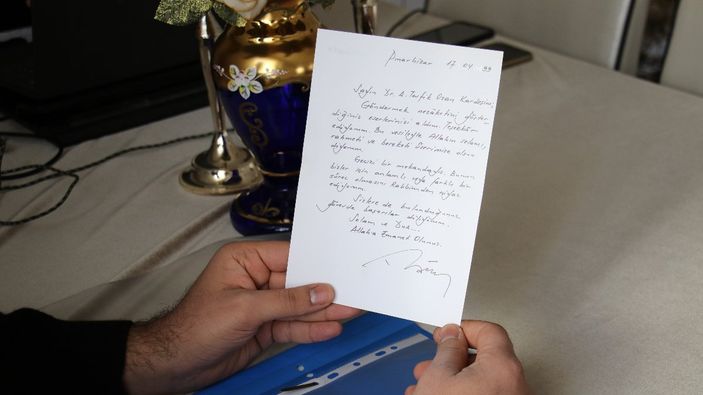 Pınarhisar 17.04.99
Sayın Dr. A. Tevfik Ozan Kardeşim;
Göndermek nezaketini göster-
diğiniz eserlerinizi aldım. Teşekkür
ediyorum. Bu vesileyle Allahın selamı,
rahmeti ve bereketi üzerimize olsun
diyorum.
Geçici bir mekandayız. Bunun
bizler için anlamlı, veya farklı bir
süreç olmasını kalbimden niyaz
ediyorum.
Sizlere de bulunduğunuz
görevde başarılar diliyorum.
Selam ve Dua...
Allaha Emanet Olunuz.